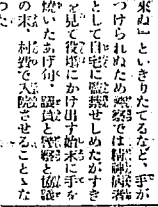 來ぬ』といきりたてるなど、手が
つけられぬため警察では精神病者
として自宅に監護せしめたがすき
を見て役場にかけ出す始末に手を
燒いたあげ句、議員と警察と協議
の末、村費で入院させることゝな
った